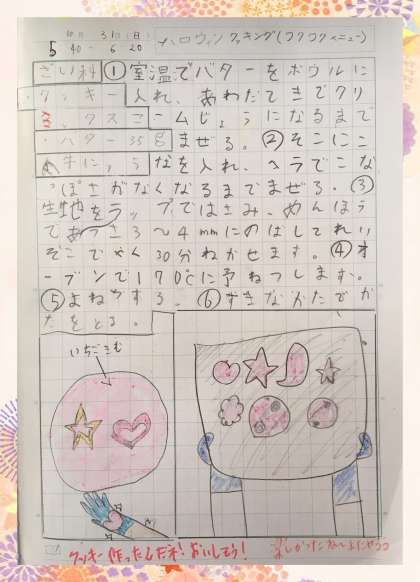 10月 31日(日)
5 40 - 6 20
ハロウィンクッキング(ワクワクメニュー)
ざい料 ①室温でバターをボウルに
・クッキー 入れ、あわだてきでクリ
ミックスコ ームじょうになるまで
・バター35g まぜる。②そこにこ
・牛にゅう なを入れ、ヘラでこな
っぽさがなくなるまでまぜる。③
生地をラップではさみ、めんぼう
であつさ3〜4mmにのばしてれい
ぞこでやく30分ねかせます。④オ
ーブンで170℃に予ねつします。
⑤まねやする、⑥すきなかたでか
たをとる。
いちごきじ
クッキー作ったんだネ!おいしそう!